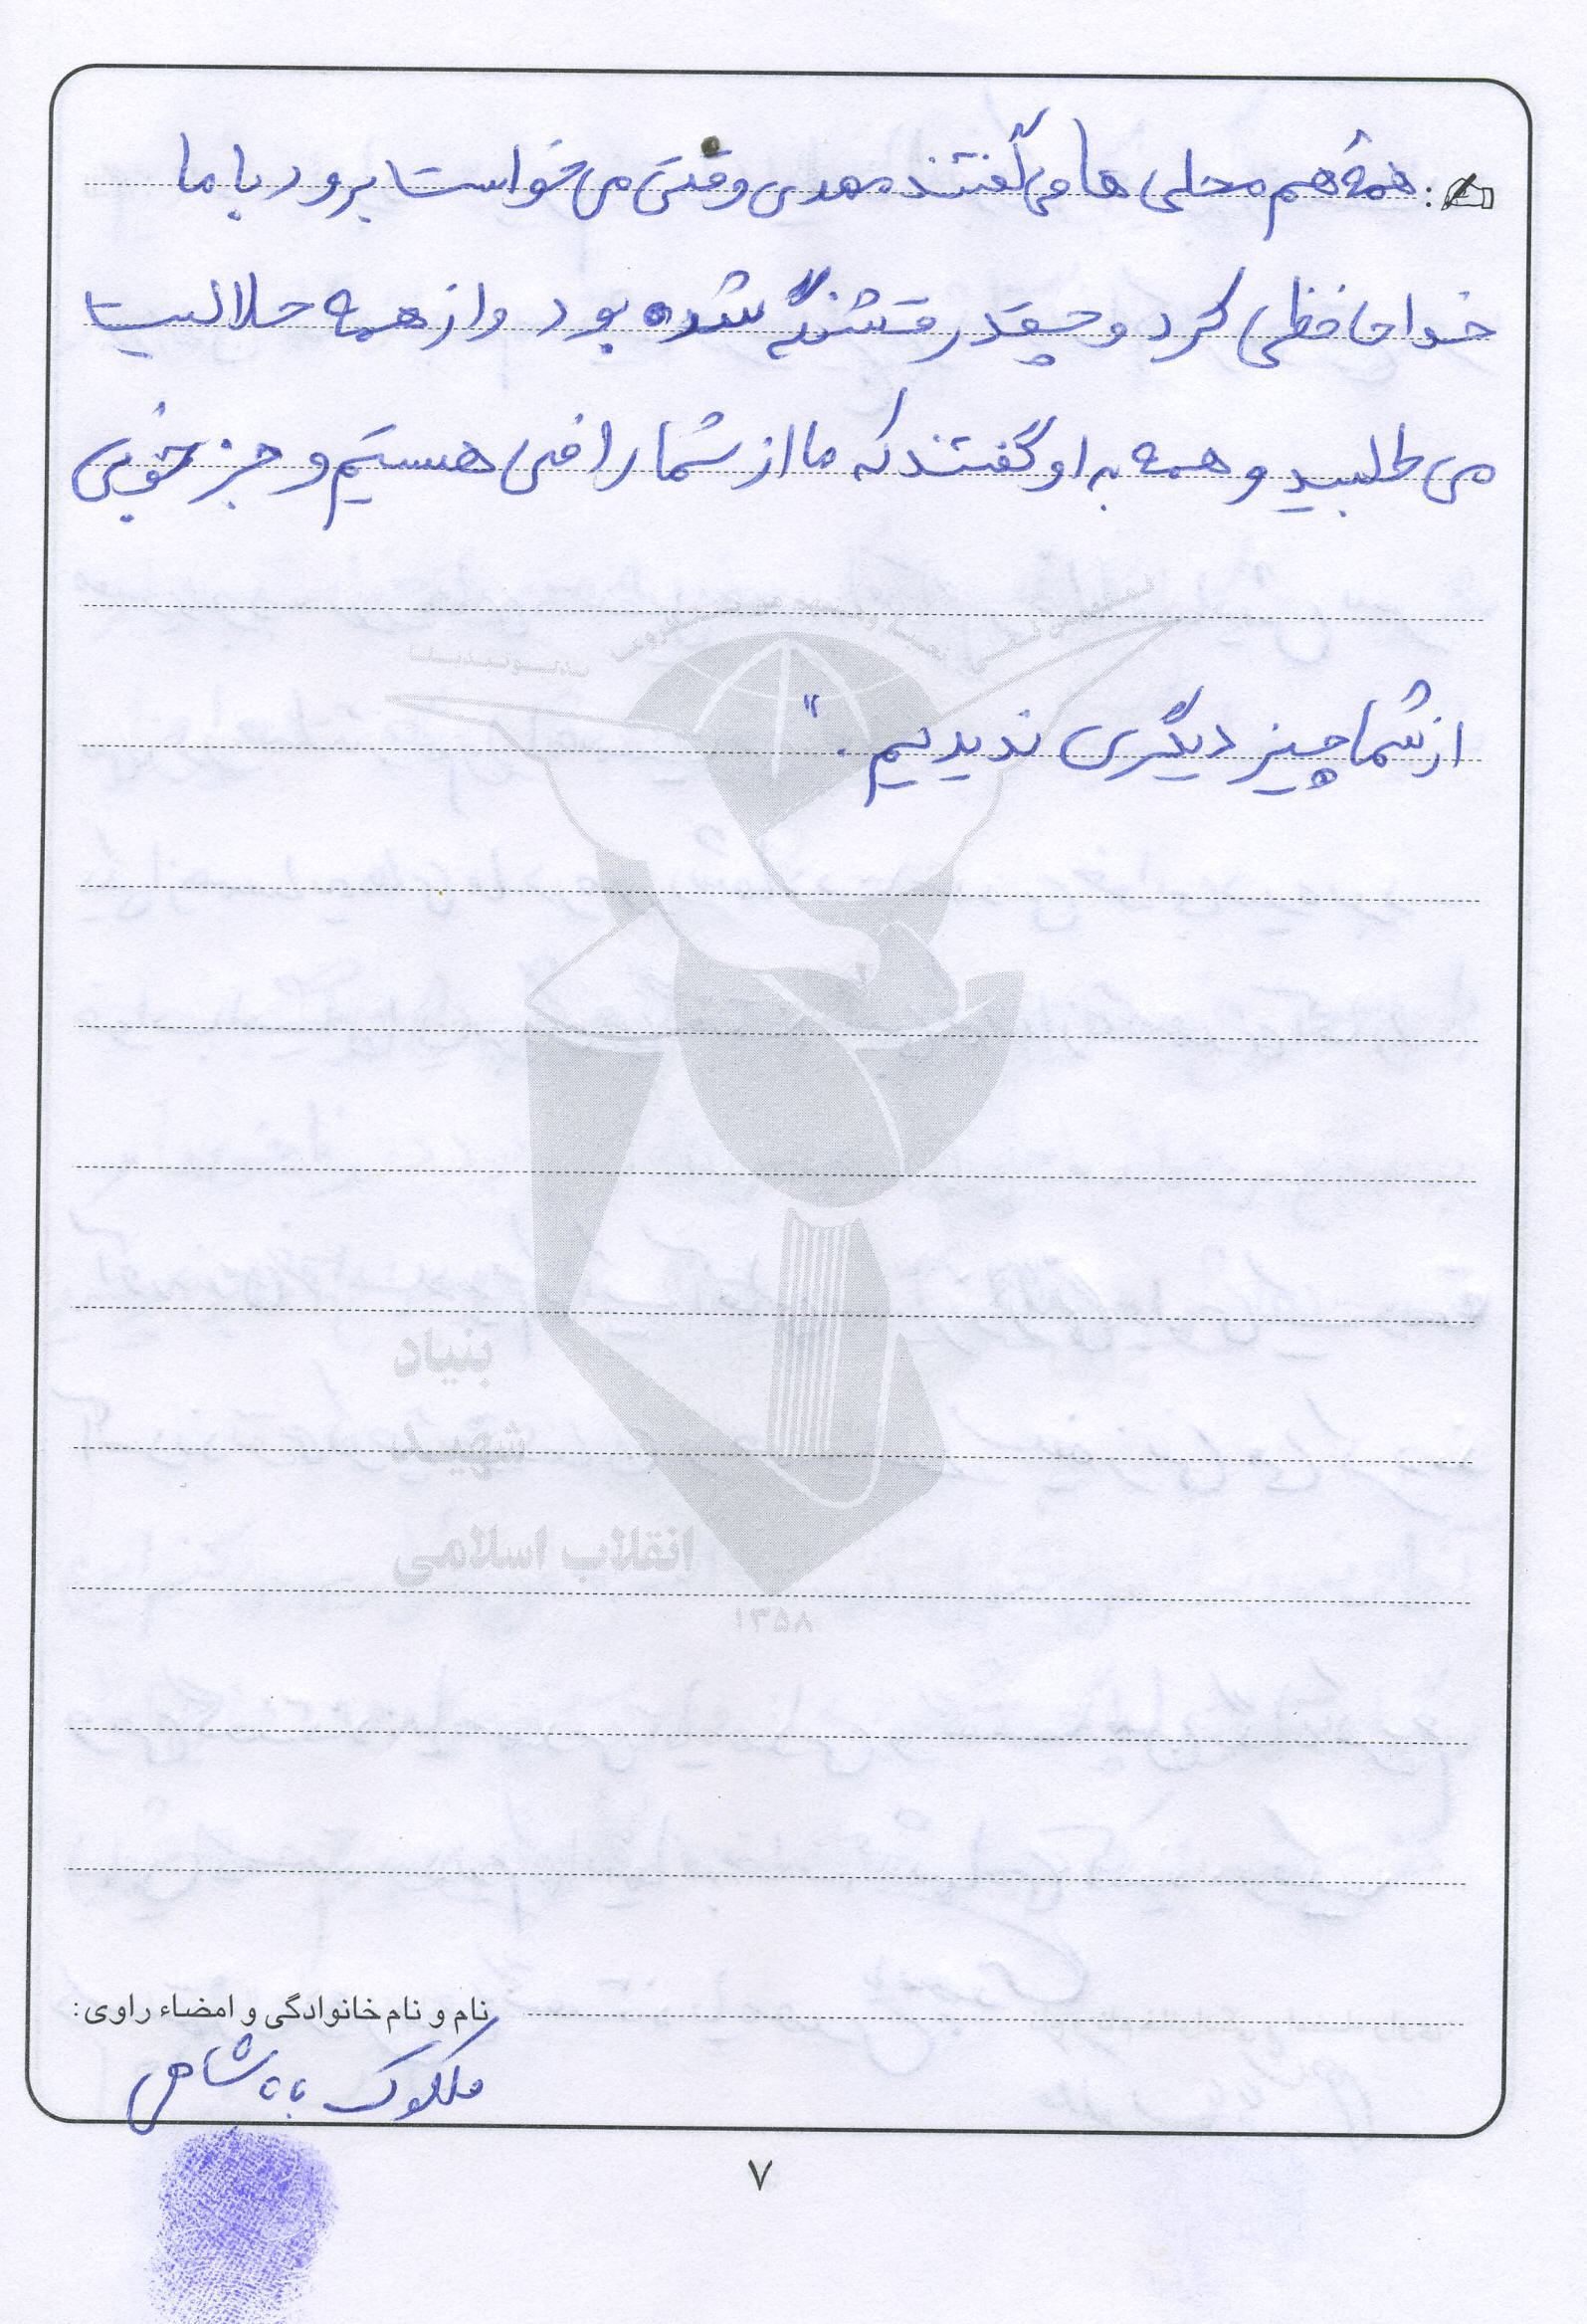 همه هم محلی ها می گفتند مهدی وقتی می خواست برود با ما
خداحافظی کرد و چقدر قشنگ شده بود و از همه حلالیت
می طلبید و همه به او گفتند که ما از شما راضی هستیم و جز خوبی
از شما چیز دیگری ندیدیم . "
بنیاد
شهید
انقلاب اسلامی
۱۳۵۸
نام و نام خانوادگی و امضاء راوی:
باباشاهی
۷